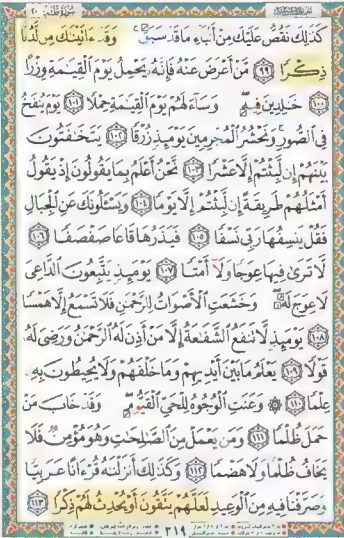 كَذَٰلِكَ نَقُصُّ عَلَيْكَ مِنْ أَنۢبَآءِ مَا قَدْ سَبَقَ ۚ وَقَدْ ءَاتَيْنَٰكَ مِن لَّدُنَّا
ذِكْرًا ٩٩ مَّنْ أَعْرَضَ عَنْهُ فَإِنَّهُۥ يَحْمِلُ يَوْمَ ٱلْقِيَٰمَةِ وِزْرًا
١٠٠ خَٰلِدِينَ فِيهِ ۖ وَسَآءَ لَهُمْ يَوْمَ ٱلْقِيَٰمَةِ حِمْلًا ١٠١ يَوْمَ يُنفَخُ
فِى ٱلصُّورِ ۚ وَنَحْشُرُ ٱلْمُجْرِمِينَ يَوْمَئِذٍ زُرْقًا ١٠٢ يَتَخَٰفَتُونَ
بَيْنَهُمْ إِن لَّبِثْتُمْ إِلَّا عَشْرًا ١٠٣ نَّحْنُ أَعْلَمُ بِمَا يَقُولُونَ إِذْ يَقُولُ
أَمْثَلُهُمْ طَرِيقَةً إِن لَّبِثْتُمْ إِلَّا يَوْمًا ١٠٤ وَيَسْـَٔلُونَكَ عَنِ ٱلْجِبَالِ
فَقُلْ يَنسِفُهَا رَبِّى نَسْفًا ١٠٥ فَيَذَرُهَا قَاعًا صَفْصَفًا ١٠٦
لَّا تَرَىٰ فِيهَا عِوَجًا وَلَآ أَمْتًا ١٠٧ يَوْمَئِذٍ يَتَّبِعُونَ ٱلدَّاعِىَ
لَا عِوَجَ لَهُۥ ۖ وَخَشَعَتِ ٱلْأَصْوَاتُ لِلرَّحْمَٰنِ فَلَا تَسْمَعُ إِلَّا هَمْسًا
١٠٨ يَوْمَئِذٍ لَّا تَنفَعُ ٱلشَّفَٰعَةُ إِلَّا مَنْ أَذِنَ لَهُ ٱلرَّحْمَٰنُ وَرَضِىَ لَهُۥ
قَوْلًا ١٠٩ يَعْلَمُ مَا بَيْنَ أَيْدِيهِمْ وَمَا خَلْفَهُمْ وَلَا يُحِيطُونَ بِهِۦ
عِلْمًا ١١٠ ۞ وَعَنَتِ ٱلْوُجُوهُ لِلْحَىِّ ٱلْقَيُّومِ ۖ وَقَدْ خَابَ مَنْ
حَمَلَ ظُلْمًا ١١١ وَمَن يَعْمَلْ مِنَ ٱلصَّٰلِحَٰتِ وَهُوَ مُؤْمِنٌ فَلَا
يَخَافُ ظُلْمًا وَلَا هَضْمًا ١١٢ وَكَذَٰلِكَ أَنزَلْنَٰهُ قُرْءَانًا عَرَبِيًّا
وَصَرَّفْنَا فِيهِ مِنَ ٱلْوَعِيدِ لَعَلَّهُمْ يَتَّقُونَ أَوْ يُحْدِثُ لَهُمْ ذِكْرًا ١١٣
٣١٩